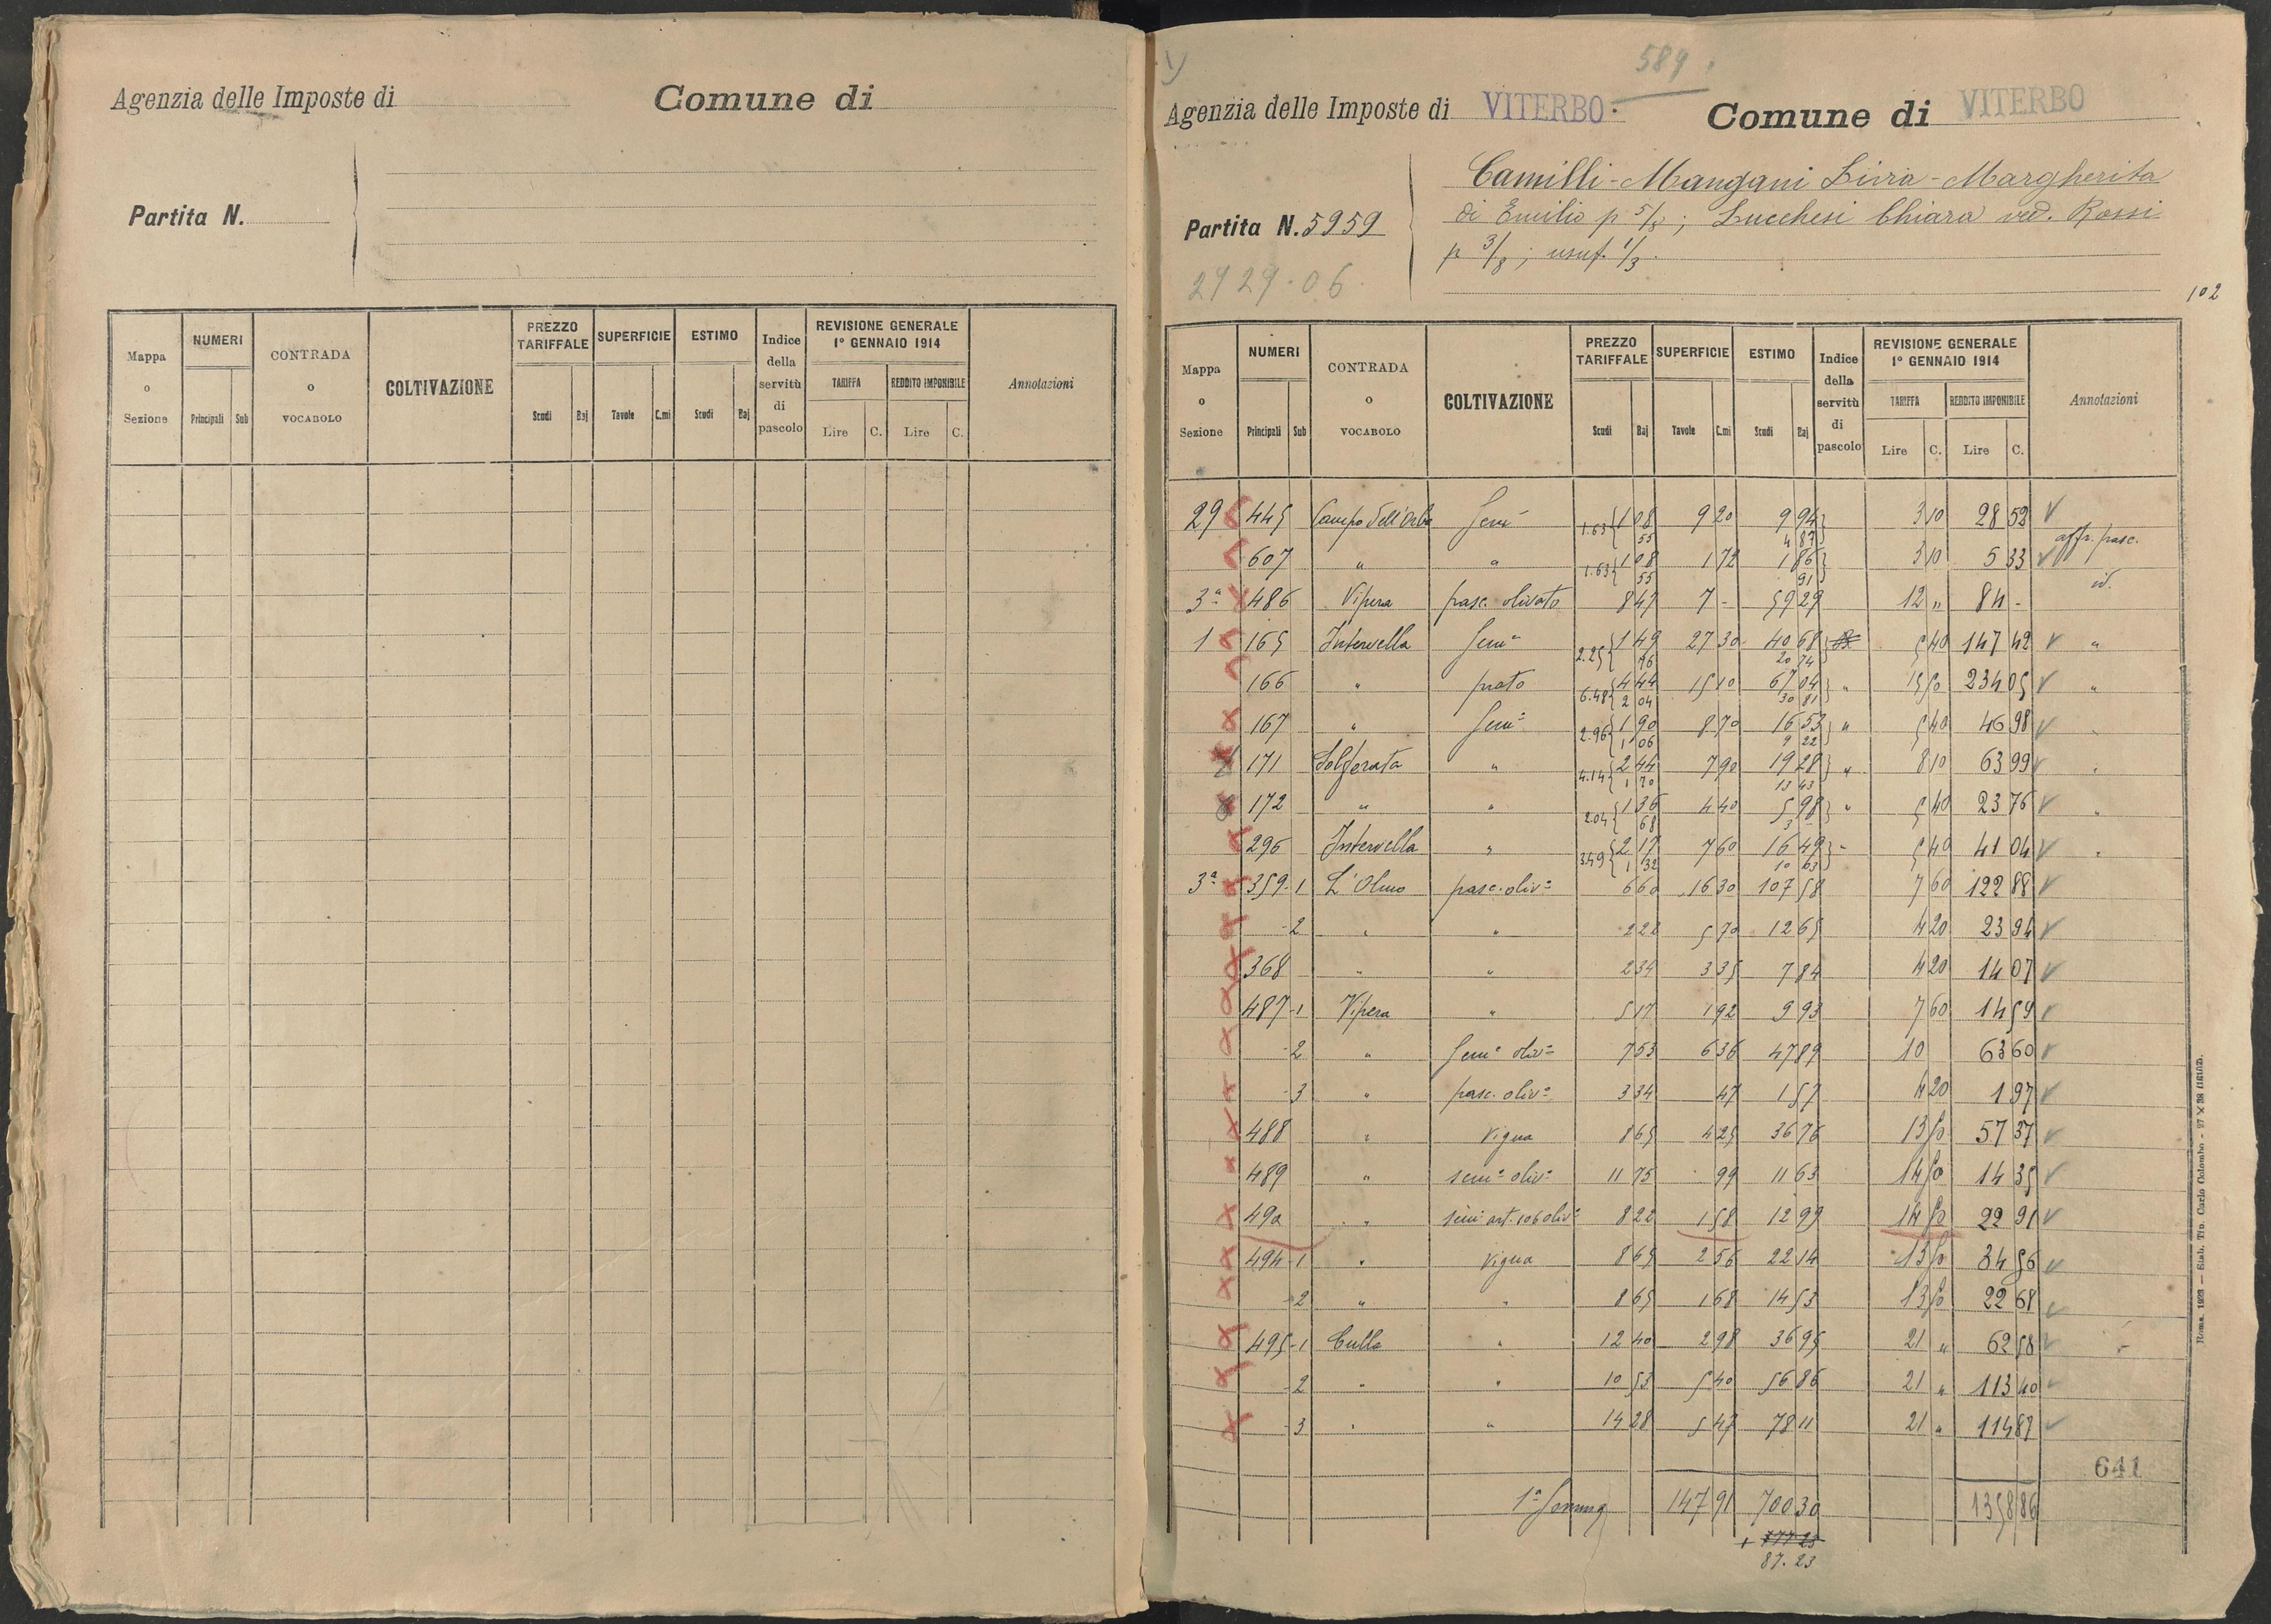 Agenzia delle Imposte di
Comune di
Partita N.
Mappa o Sezione
NUMERI
Principali Sub
CONTRADA o VOCABOLO
COLTIVAZIONE
PREZZO TARIFFALE
Scudi Baj
SUPERFICIE
Tavole C.mi
ESTIMO
Scudi Baj
Indice della servitù di pascolo
REVISIONE GENERALE
1° GENNAIO 1914
TARIFFA REDDITO IMPONIBILE
Lire C. Lire C.
Annotazioni
589
Agenzia delle Imposte di VITERBO
Comune di VITERBO
Camilli-Mangani Livia-Margherita
di Emilio p 5/8; Lucchesi Chiara ved. Rossi
p 3/8; usuf. 1/3.
Partita N. 5959
2929.06
102
Mappa o Sezione
NUMERI
Principali Sub
CONTRADA o VOCABOLO
COLTIVAZIONE
PREZZO TARIFFALE
Scudi Baj
SUPERFICIE
Tavole C.mi
ESTIMO
Scudi Baj
Indice della servitù di pascolo
REVISIONE GENERALE
1° GENNAIO 1914
TARIFFA REDDITO IMPONIBILE
Lire C. Lire C.
Annotazioni
29 445 Campo dell'Orbo Semº 1.63 { 1 08 9 20 9 94 3 10 28 52
55 4 87 affr. pasc.
607 " " 1.63 { 1 08 1 72 1 86 3 10 5 33
55 91 id.
3ª 486 Vipera pasc. olivato 8 47 7 - 59 29 12 " 84 -
1 165 Intervella Semº 2.25 { 1 49 27 30 40 68 5 40 147 42 "
76 20 74
166 " prato 6.48 { 4 44 15 10 67 04 " 15 50 234 05 "
2 04 30 81
167 " Semº 2.96 { 1 90 8 70 16 53 " 5 40 46 98
1 06 9 22
171 Solforata " 4.14 { 2 44 7 90 19 28 " 8 10 63 99
1 70 13 43
172 " " 2.04 { 1 36 4 40 5 98 " 5 40 23 76
68 3
296 Intervella " 3.49 { 2 17 7 60 16 49 " 5 40 41 04
1 32 10 03
3ª 359-1 L'Olmo pasc. olivº 6 60 16 30 107 58 7 60 122 88
-2 " " 2 22 5 70 12 65 4 20 23 94
368 " " 2 34 3 35 7 84 4 20 14 07
487-1 Vipera " 5 17 1 92 9 93 7 60 14 59
-2 " Semº olivº 7 53 6 36 47 89 10 63 60
-3 " pasc. olivº 3 34 47 1 57 4 20 1 97
488 " Vigna 8 65 4 25 36 76 13 50 57 37
489 " semº olivº 11 75 99 11 63 14 50 14 35
490 " semº art. 106 olivº 8 22 1 58 12 99 14 50 22 91
494-1 " Vigna 8 65 2 56 22 14 13 50 34 56
-2 " " 8 65 1 68 14 53 13 50 22 68
495-1 Culla " 12 40 2 98 36 95 21 " 62 58
-2 " " 10 53 5 40 56 86 21 " 113 40
-3 " " 14 28 5 47 78 11 21 " 114 87
641
1ª Somma 147 91 700 30 1358 86
87.23
Roma, 1923 — Stab. Tip. Carlo Colombo